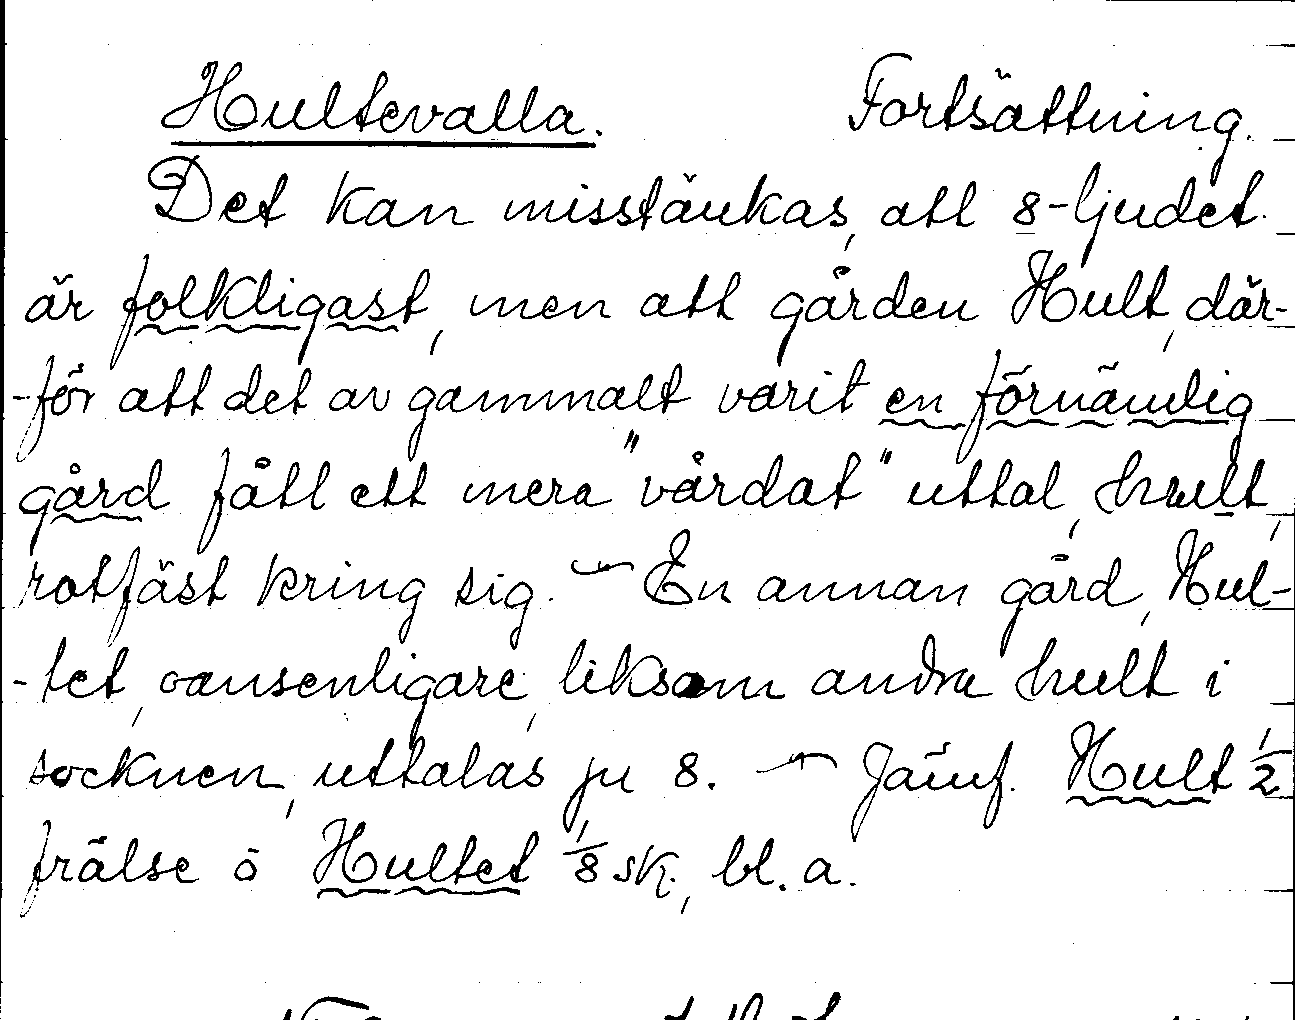 Hultevalla. Fortsättning.
Det kan misstänkas, att 8-ljudet
är folkligast, men att gården Hult, där-
-för att det av gammalt varit en förnämlig
gård fått ett mera "vårdat" uttal, hult,
rotfäst kring sig. - En annan gård, Hul-
-tet, oansenligare, liksom andra hult i
socknen, uttalas ju 8. - Jämf. Hult 1/2
frälse o Hultet 1/8 sk., bl. a.